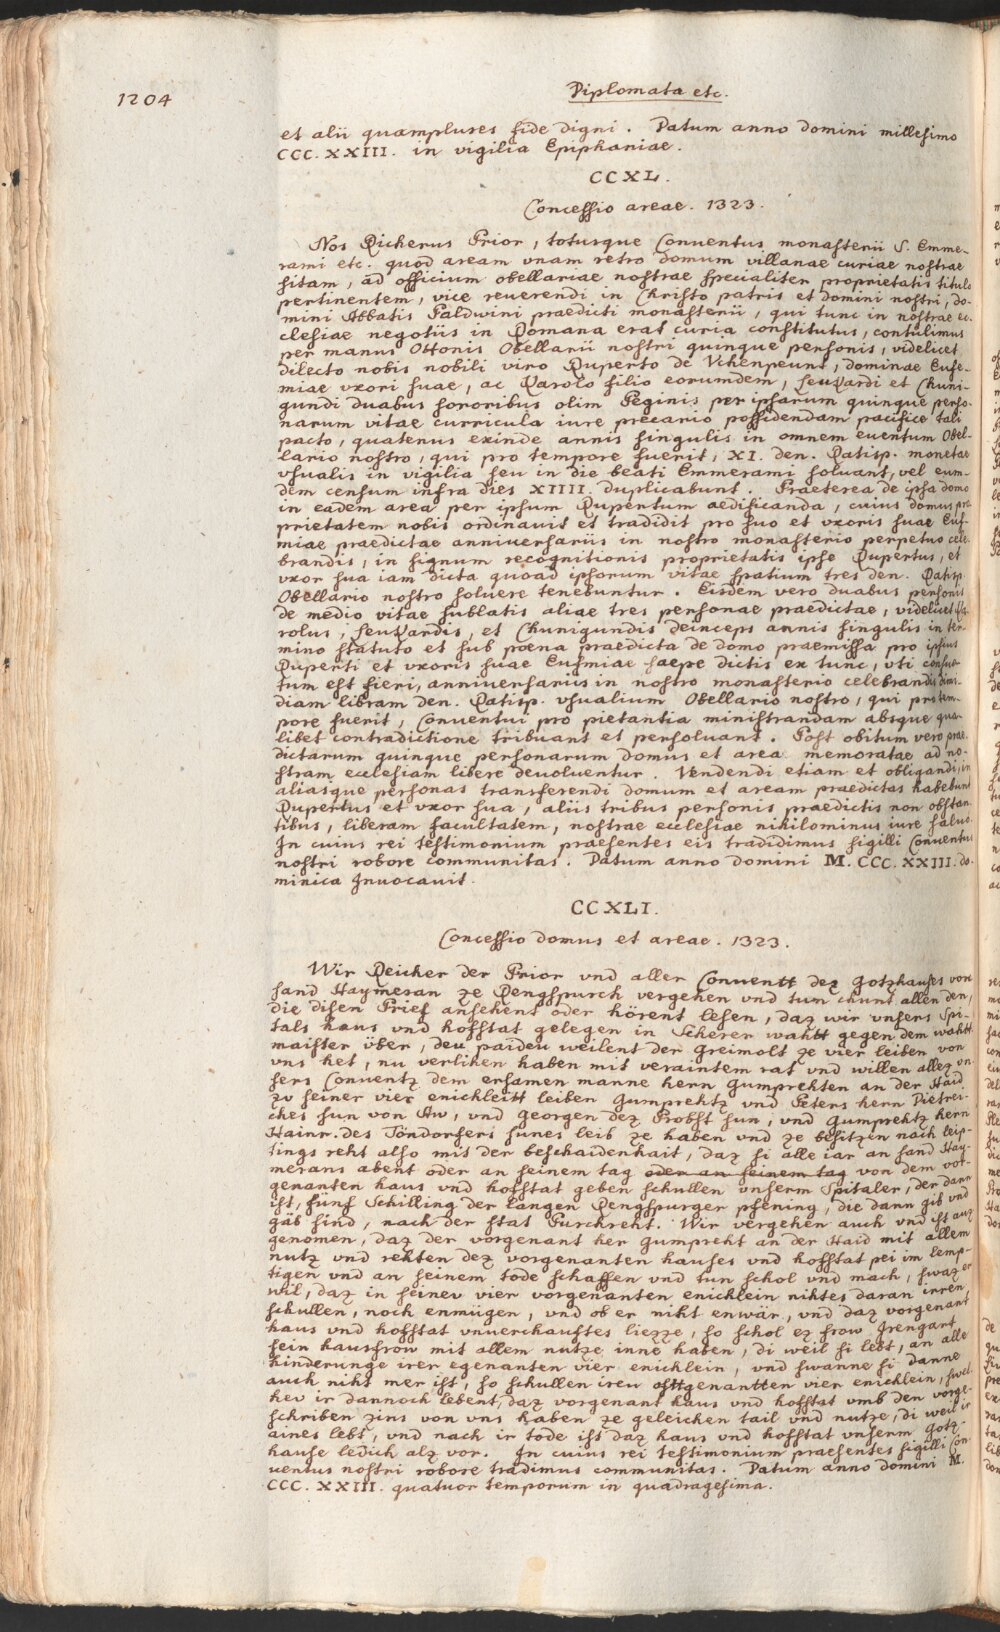 1204
Diplomata etc.
et alii quamplures fide digni. Datum anno domini millesimo
CCC. XXIII. in vigilia Epiphaniae.
CCXL.
Concessio areae. 1323.
Nos Richerus Prior, totusque Conventus monasterii S. Emme-
rami etc. quod aream vnam retro domum villanae curiae nostrae
sitam, ad officium obellariae nostrae specialiter proprietatis titulo
pertinentem, vice reuerendi in Christo patris et domini nostri, do-
mini Abbatis Baldwini praedicti monasterii, qui tunc in nostrae ec-
clesiae negotiis in Romana erat curia constitutus, contulimus
per manus Ottonis Obellarii nostri quinque personis, videlicet
dilecto nobis nobili viro Ruperto de Vchenpeunt, dominae Eufe-
miae vxori suae, ac Karolo filio eorumdem, Leukardi et Chuni-
gundi duabus sororibus olim Peginis per ipsarum quinque perso-
narum vitae curricula iure precario possidendam pacifice tali
pacto, quatenus exinde annis singulis in omnem euentum Obel-
lario nostro, qui pro tempore fuerit, XI. den. Ratisp. monetae
vsualis in vigilia seu in die beati Emmerami soluant, vel eum-
dem censum infra dies XIIII. duplicabunt. Praeterea de ipsa domo
in eadem area per ipsum Rupertum aedificanda, cuius domus pro-
prietatem nobis ordinauit et tradidit pro suo et vxoris suae Euf-
miae praedictae anniuersariis in nostro monasterio perpetuo cele-
brandis, in signum recognitionis proprietatis ipse Rupertus, et
vxor sua iam dicta quoad ipsorum vitae spatium tres den. Ratisp.
Obellario nostro soluere tenebuntur. Eisdem vero duabus personis
de medio vitae sublatis aliae tres personae praedictae, videlicet Ka-
rolus, Leukardis, et Chunigundis deinceps annis singulis in ter-
mino statuto et sub poena praedicta de domo praemissa pro ipsius
Ruperti et vxoris suae Eufmiae saepe dictis ex tunc, vti consue-
tum est fieri, anniuersariis in nostro monasterio celebrandis dimi-
diam libram den. Ratisp. vsualium Obellario nostro, qui pro tem-
pore fuerit, Conuentui pro pietantia ministrandam absque qua-
libet contradictione tribuant et persoluant. Post obitum vero prae-
dictarum quinque personarum domus et area memoratae ad no-
stram ecclesiam libere deuoluentur. Vendendi etiam et obligandi, in
aliasque personas transferendi domum et aream praedictas habebunt
Rupertus et vxor sua, aliis tribus personis praedictis non obstan-
tibus, liberam facultatem, nostrae ecclesiae nihilominus iure saluo.
In cuius rei testimonium praesentes eis tradidimus sigilli Conuentus
nostri robore communitas. Datum anno domini M. CCC. XXIII. do-
minica Jnuocauit.
CCXLI.
Concessio domus et areae. 1323.
Wir Reicher der Prior vnd aller Conuentt dez Gotzhauses von
sand Haymeran ze Rengspurch vergehen vnd tum chunt allen den,
die disen Prief ansehent oder hörent lesen, daz wir vnsers Spi-
tals haus vnd hofstat gelegen in Scherer wahtt gegen dem wahtt-
maister über, deu paideu weilent der Greimolt ze vier leiben von
vns het, nu verlihen haben mit veraintem rat vnd willen allez vn-
sers Conuentz dem ersamen manne hern Gumprehten an der Haid
zu seiner vier enichleitt leiben Gumprehtz vnd Peters hern Dietrei-
ches sun von Aw, vnd Georgen dez Probst sun, vnd Gumprehtz hern
Hainr. des Töndorfers sunes leib ze haben vnd ze besitzin nach leip-
tings reht also mit der beschaidenhait, daz si alle iar an sand Hay-
merans abent oder an seinem tag oder an seinem tag von dem vor-
genanten haus vnd hofstat geben schullen vnserm Spitaler, der dann
ist, fünf Schilling der langen Rengspurger pfening, die dann gib vnd
gäb sind, nach der stat Purchreht. Wir vergehen auch vnd ist auz
genomen, daz der vorgenant her Gumpreht an der Haid mit allem
nutz vnd rehten dez vorgenanten hauses vnd hofstat pei im lemp-
tigen vnd an seinem tode schaffen vnd tun schol vnd mach, swaz er
wil, daz in seineu vier vorgenanten enichlein nihtes daran irren
schullen, noch enmügen, vnd ob er niht enwär, vnd daz vorgenant
haus vnd hofstat vnuerchauftes liezze, so schol ez frow Jrengart
sein hausfrow mit allem nutze inne haben, di weil si lebt, an alle
hinderunge irer egenanten vier enichlein, vnd swanne si danne
auch niht mer ist, so schullen ireu oftgenantten vier enichlein, swel-
heu ir dannoch lebent, daz vorgenant haus vnd hofstat vmb den vorge-
schriben zins von vns haben ze geleichen tail vnd nutze, di weil ir
aines lebt, vnd nach ir tode ist daz haus vnd hofstat vnserm Gotz-
hause ledich alz vor. In cuius rei testimonium praesentes sigilli Con-
uentus nostri robore tradimus communitas. Datum anno domini M.
CCC. XXIII. quatuor temporum in quadragesima.